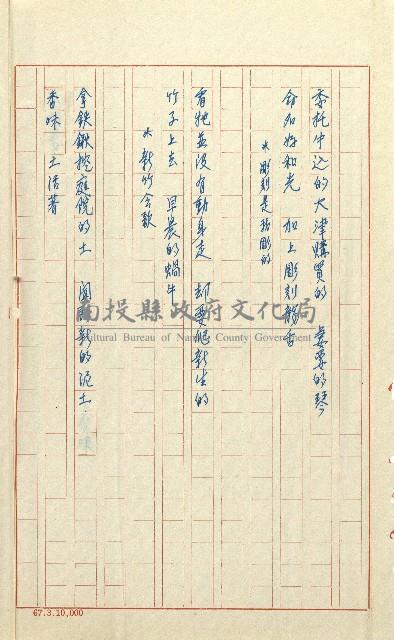 委託中込的大津購買的　妻要的琴
命加好和光　加上彫刻
大彫刻是我彫的
看牠並沒有動身走　却要爬新生的
竹子上去　早晨的蝸牛
大新竹今歌
拿鉄鍬挖庭院的土　聞新的泥土
香味土活著
南投縣政府文化局
Cultural Bureau of Nantou County Government
67.3.10,000